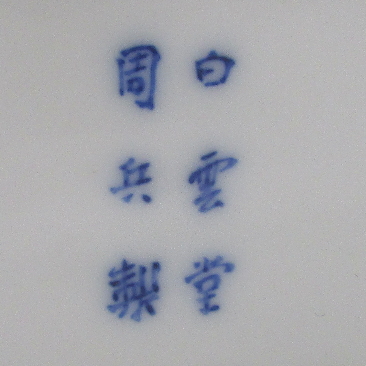 白雲堂
周兵製